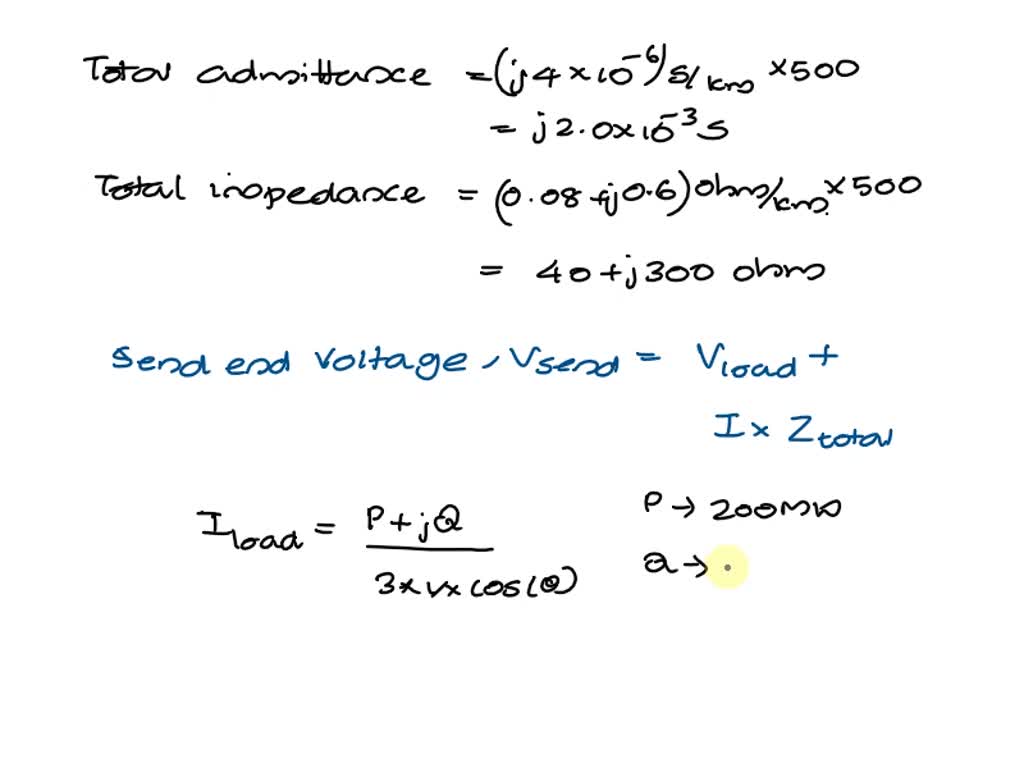 Total admittance = (j4×10⁻⁶) S/km ×500
= j2.0×10⁻³ S
Total inopedance = (0.08+j0.6) ohms/km ×500
= 40+j300 ohms
Send end voltage, Vsend = Vload +
I× Ztotal
Iload = P+jQ / 3×V×cos(θ)
P → 200MW
Q → .